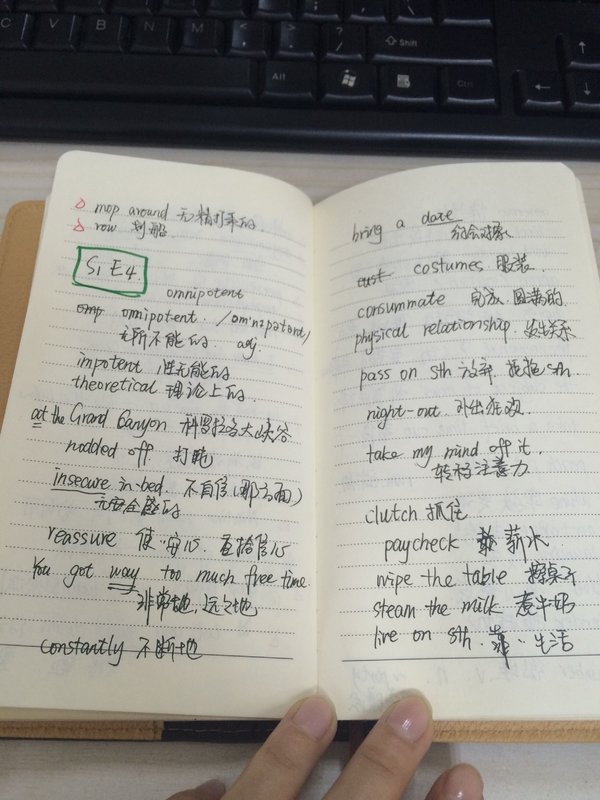 mop around 无精打采的
row 划船
S1 E4.
omnipotent
omp omnipotent. /om'nipətənt/
无所不能的 adj.
impotent 性无能的
theoretical 理论上的
at the Grand Canyon 科罗拉多大峡谷
nodded off 打盹
insecure in-bed. 不自信(那方面)
无安全感的
reassure 使··安心. 重拾信心
You got way too much free time.
非常地, 远远地
constantly 不断地
bring a date
约会对象
cust costumes 服装.
consummate 完成. 圆满的.
physical relationship. 发生关系
pass on sth 放弃. 拒绝sth.
night-out. 外出狂欢.
take my mind off it.
转移注意力
clutch 抓住
paycheck 薪水.
wipe the table 擦桌子
steam the milk 煮牛奶
live on sth. 靠··生活
Shift
Alt
Ctrl
C V B N M